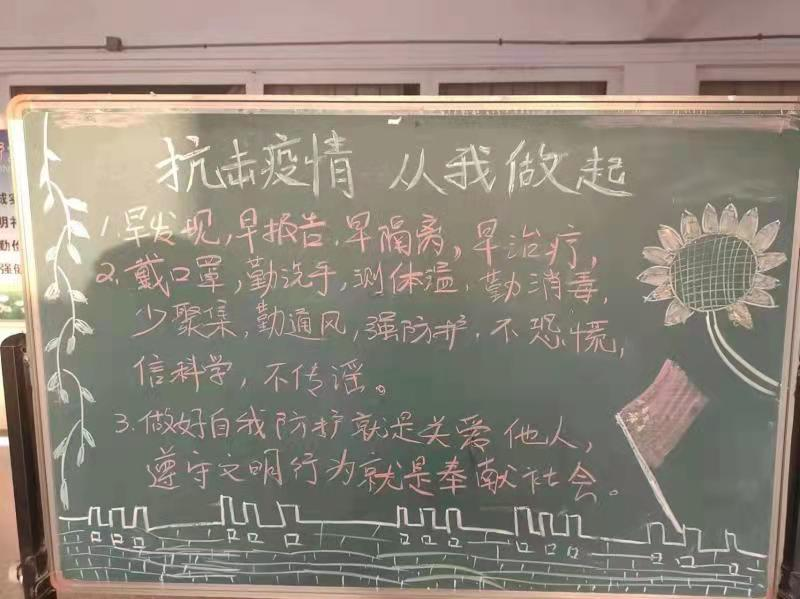 抗击疫情 从我做起
1.早发现,早报告,早隔离,早治疗,
2.戴口罩,勤洗手,测体温,勤消毒,
少聚集,勤通风,强防护,不恐慌,
信科学,不传谣。
3.做好自我防护就是关爱他人,
遵守文明行为就是奉献社会。